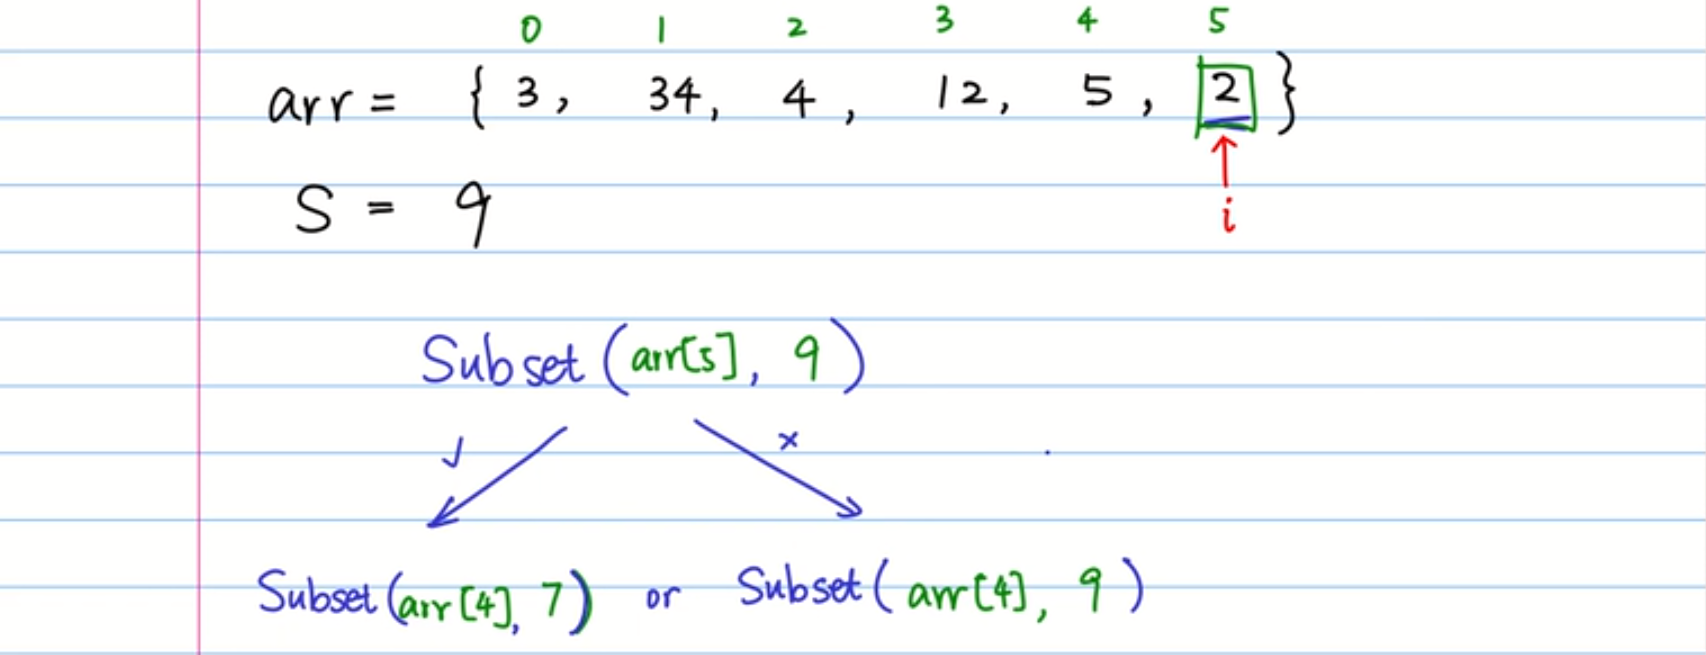 0 1 2 3 4 5
arr = { 3, 34, 4, 12, 5, 2 }
i
S = 9
Subset (arr[5], 9)
✓ ×
Subset (arr[4], 7) or Subset (arr[4], 9)